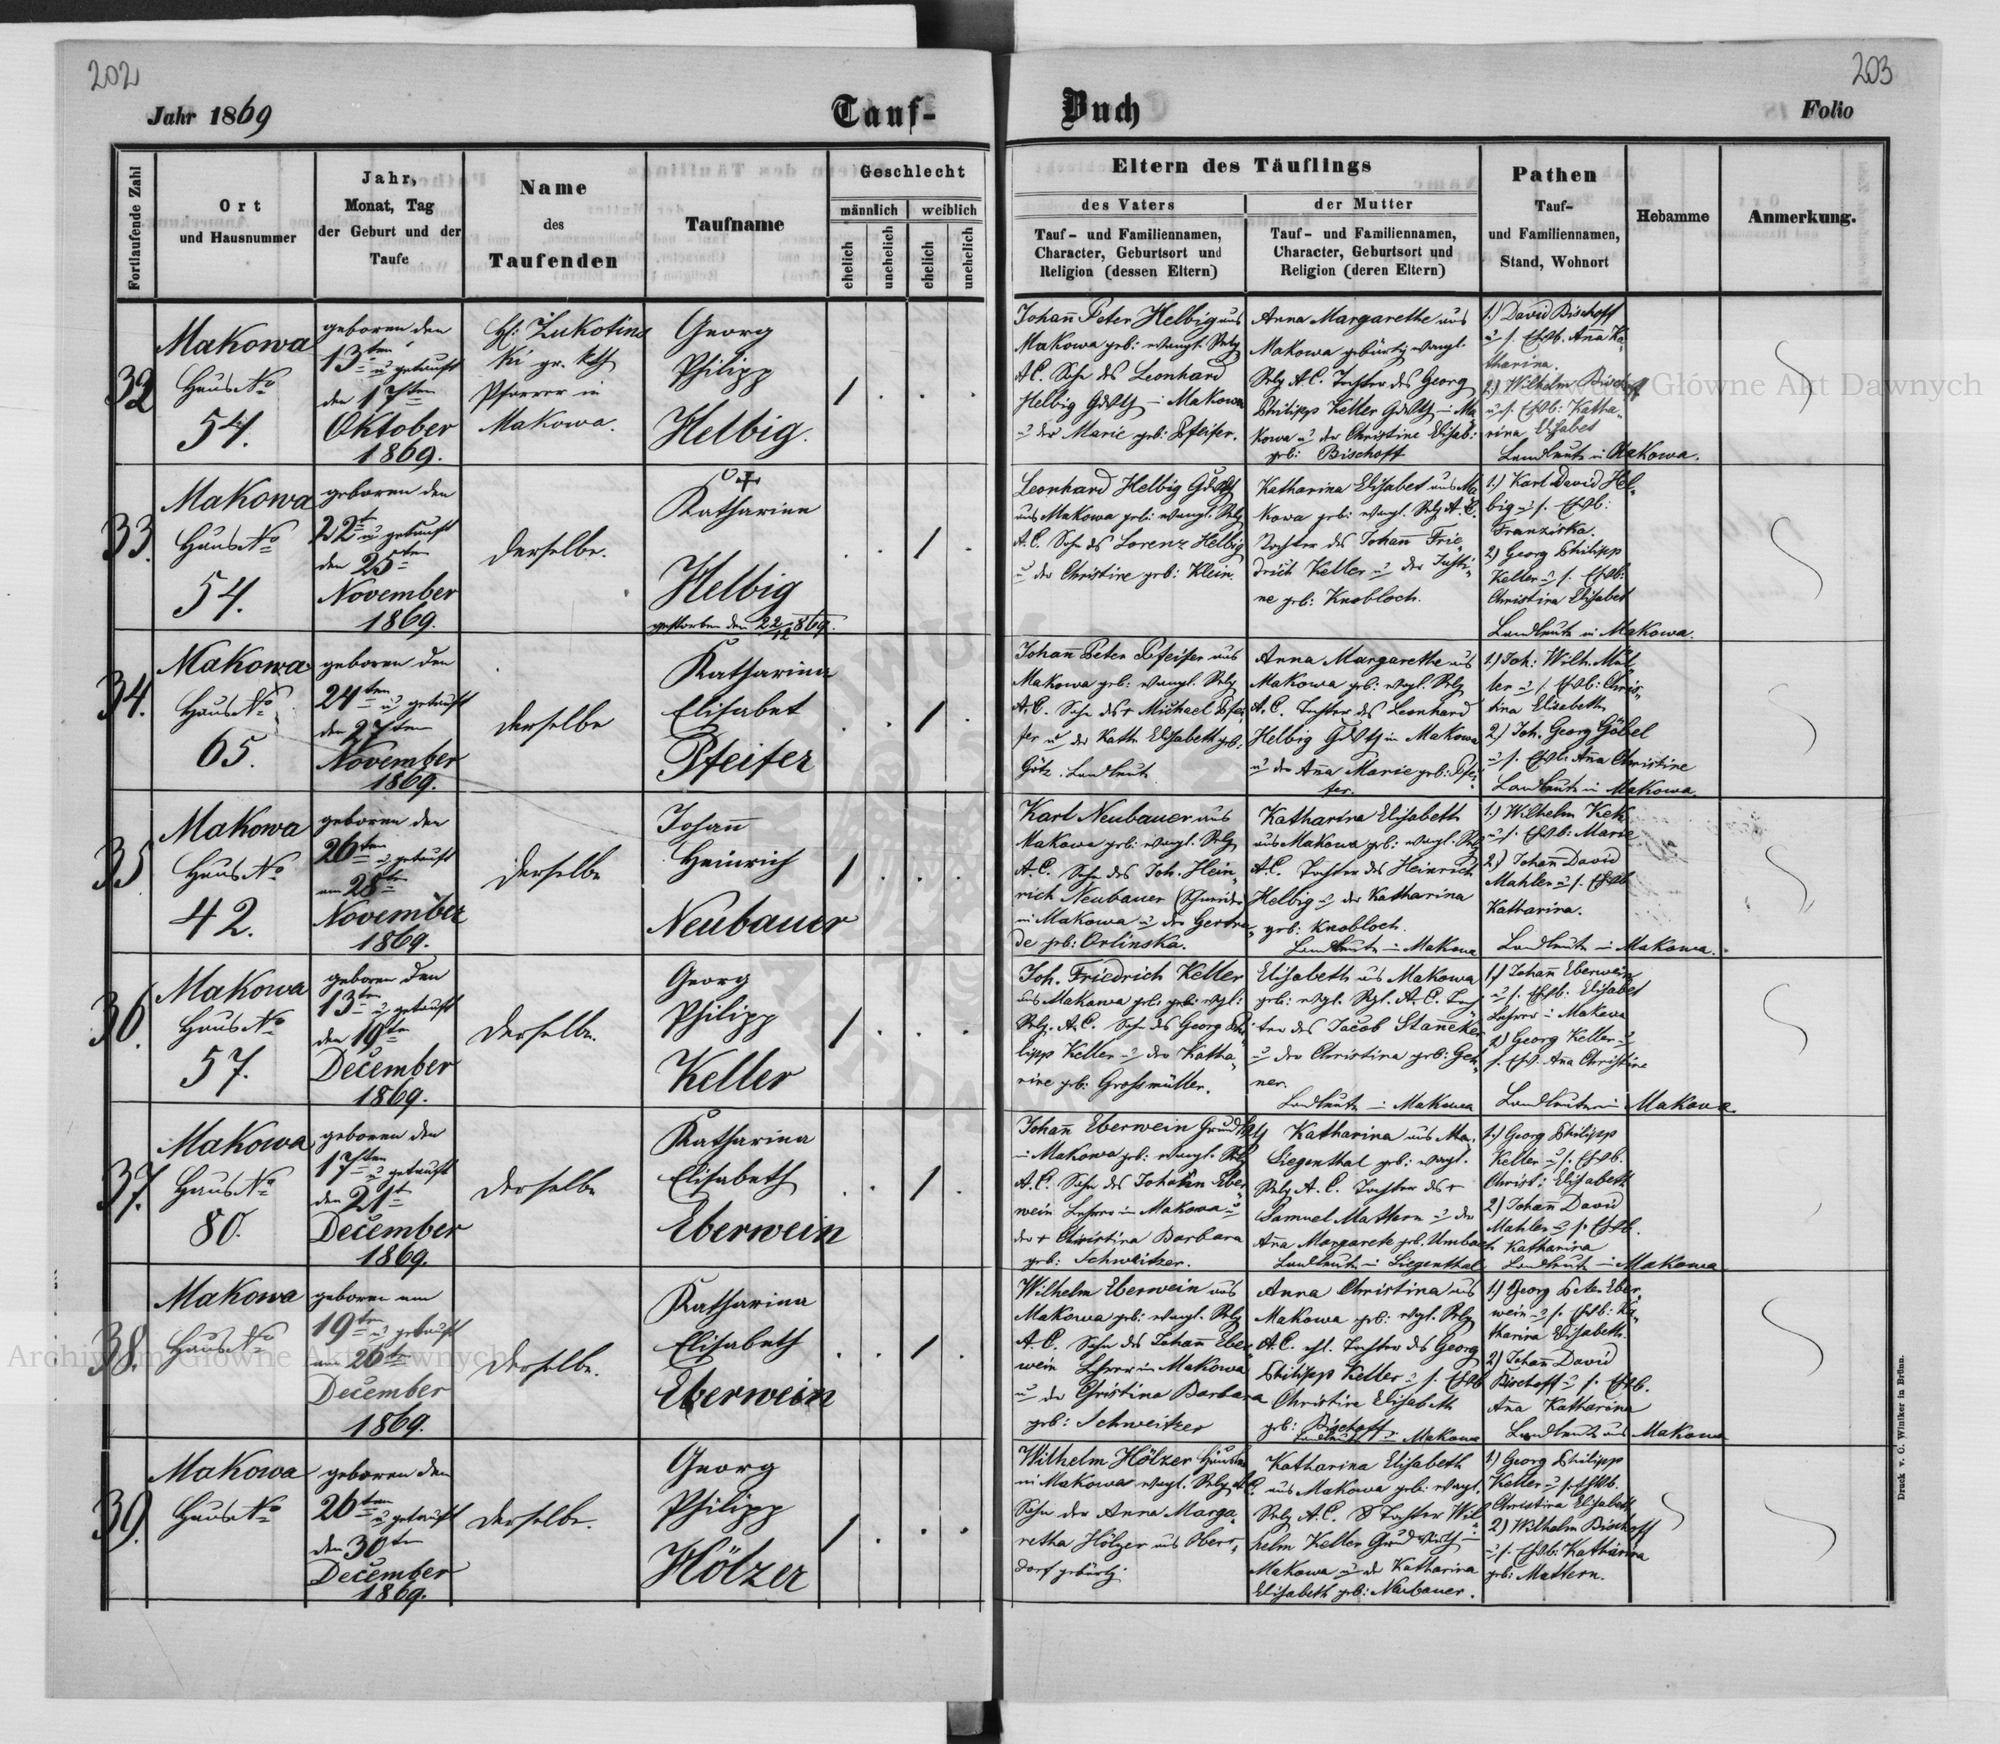 202
203
Jahr 1869
Tauf-
Buch
Folio
Fortlaufende Zahl
Ort
und Hausnummer
Jahr,
Monat, Tag
der Geburt und der
Taufe
Name
des
Taufenden
Taufname
Geschlecht
männlich
weiblich
ehelich
unehelich
ehelich
unehelich
Eltern des Täuflings
des Vaters
der Mutter
Tauf- und Familiennamen,
Character, Geburtsort und
Religion (dessen Eltern)
Tauf- und Familiennamen,
Character, Geburtsort und
Religion (deren Eltern)
Pathen
Tauf-
und Familiennamen,
Stand, Wohnort
Hebamme
Anmerkung.
32
Makowa
Haus No
54.
geboren den
13ten u getauft
den 17ten
Oktober
1869.
H: Żukotins
ki gr. kth
Pfarrer in
Makowa.
Georg
Philipp
Helbig.
1
Johann Peter Helbig aus
Makowa geb: evangl. Relg
A.C. Sohn des Leonhard
Helbig in Makowa
u der Marie geb: Pfeifer.
Anna Margarethe aus
Makowa gebürtig evangl.
Relg A.C. Tochter des Georg
Philipp Keller in Ma
kowa u der Christine Elisab:
geb: Bischoff
1.) David Bischoff
u s. Ehwb. Anna Ka-
tharina.
2.) Wilhelm Bischoff
u s. Ehwb: Katha-
rina Elisabet
Landleute in Makowa.
33.
Makowa
Haus No
54.
geboren den
22t u getauft
den 25ten
November
1869.
derselbe.
Katharina
Helbig
gestorben den 22/12 869.
1
Leonhard Helbig
aus Makowa geb: evangl. Relg
A.C. Sohn des Lorenz Helbig
u der Christine geb: Klein.
Katharina Elisabet aus Ma
kowa geb: evangl. Relg A.C.
Tochter des Johan Frie-
drich Keller u der Justi-
ne geb: Knobloch.
1.) Karl David Hel-
big u s. Ehwb:
Franziska.
2) Georg Philipp
Keller u s. Ehwb:
Christina Elisabet
Landleute in Makowa.
34.
Makowa
Haus No
65.
geboren den
24ten u getauft
den 27ten
November
1869.
derselbe
Katharina
Elisabet
Pfeifer
1
Johann Peter Pfeifer aus
Makowa geb: evangl. Relg
A.C. Sohn des + Michael Pfei-
fer u der Kath. Elisabeth geb:
Götz. Landleute
Anna Margarethe aus
Makowa geb: evgl. Relg
A.C. Tochter des Leonhard
Helbig in Makowa
u der Anna Marie geb: Pfei-
fer.
1.) Joh: Wilh. Mül-
ler u s Ehwb: Chris-
tina Elisabeth
2.) Joh. Georg Göbel
u s. Ehwb. Anna Christine
Landleute in Makowa.
35
Makowa
Haus No
42.
geboren den
26ten u getauft
am 28ten
November
1869.
derselbe
Johann
Heinrich
Neubauer
1
Karl Neubauer aus
Makowa geb: evangl. Relg
A.C. Sohn des Joh. Hein-
rich Neubauer Schneider
in Makowa u der Gertru-
de geb: Orlinska.
Katharina Elisabeth
aus Makowa geb: evangl. Relg
A.C. Tochter des Heinrich
Helbig u der Katharina
geb: Knobloch.
Landleute in Makowa
1.) Wilhelm
u s. Ehwb: Marie
2.) Johann David
Mahler u s. Ehwb
Katharina.
Landleute in Makowa.
36.
Makowa
Haus No
57.
geboren den
13ten u getauft
den 19ten
December
1869.
derselbe.
Georg
Philipp
Keller
1
Joh. Friedrich Keller
aus Makowa geb: geb: evgl:
Relg. A.C. Sohn des Georg Phi-
lipp Keller u der Katha-
rine geb: Grossmüller.
Elisabeth aus Makowa
geb: evgl. Rgl. A.C. Toch-
ter des Jacob Stanneker
u der Christina geb:
ner.
Landleute in Makowa
1.) Johann Eberwein
u s. Ehwb: Elisabet
Lehrer in Makowa
2) Georg Keller u
s. Ehw. Ana Christine
Landleute in Makowa.
37.
Makowa
Haus No
80.
geboren den
17ten u getauft
den 21t
December
1869.
derselbe
Katharina
Elisabeth
Eberwein
1
Johann Eberwein
in Makowa geb: evangl. Relg
A.C. Sohn des Johann Eber-
wein Lehrer in Makowa u
der + Christina Barbara
geb: Schweitzer.
Katharina aus Ma.
Siegenthal geb: evgl.
Relg A.C. Tochter des +
Samuel Mattern u der
Anna Margarete geb. Umbach
Landleute in Siegenthal
1.) Georg Philipp
Keller u s. Ehwb.
Christ: Elisabeth
2) Johann David
Mahler u s. Ehwb.
Katharina
Landleute in Makowa
38.
Makowa
Haus No
geboren am
19ten u getauft
am 26ten
December
1869.
derselbe.
Katharina
Elisabeth
Eberwein
1
Wilhelm Eberwein aus
Makowa geb: evangl. Relg
A.C. Sohn des Johann Eber-
wein Lehrer in Makowa
u der Christina Barbara
geb: Schweitzer
Anna Christina aus
Makowa geb: evgl. Relg
A.C. ehl. Tochter des Georg
Philipp Keller u s. Ehwb
Christine Elisabeth
geb: Bischoff
Landleute in Makowa
1.) Georg Peter Eber-
wein u s. Ehwb: Ka-
tharina Elisabeth.
2) Johann David
Bischoff u s. Ehwb.
Anna Katharina
Landleute aus Makowa
39.
Makowa
Haus No
geboren den
26ten u getauft
den 30ten
December
1869.
derselbe.
Georg
Philipp
Hölzer
1
Wilhelm Hölzer
in Makowa evangl. Relg A.C.
Sohn der Anna Marga-
retha Hölzer aus Obers-
dorf gebürtig.
Katharina Elisabeth
aus Makowa geb: evangl.
Relg A.C. Tochter Wil-
helm Keller
Makowa u der Katharina
Elisabeth geb: Neubauer.
1) Georg Philipp
Keller u s. Ehwb.
Christina Elisabeth
2) Wilhelm Bischoff
u s. Ehwb: Katharina
geb: Mattern.
Druck v. C. Winiker in Brünn.
Archiwum Główne Akt Dawnych
Główne Akt Dawnych